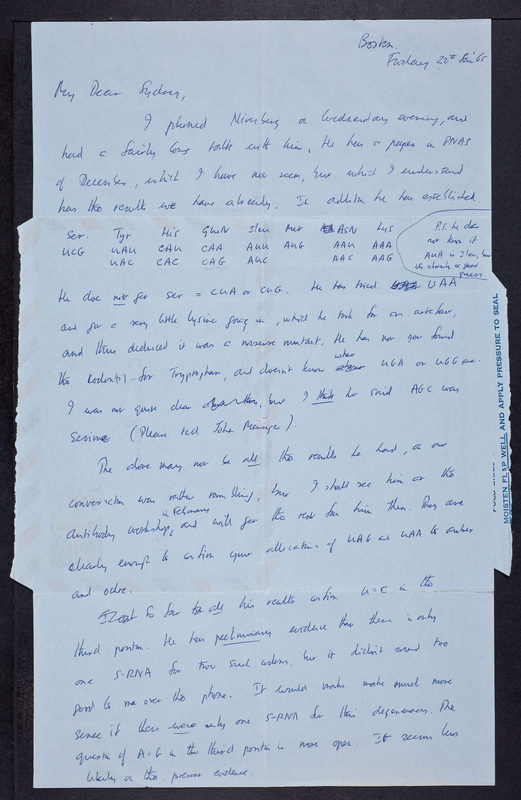 Boston.
Friday 22nd Jan 65
My Dear Sydney,
I phoned Nirenberg on Wednesday evening, and
had a fairly long talk with him. He has a paper in PNAS
of December, which I have not seen, but which I understand
has the results we have already. In addition he has established.
Ser. Tyr His GluN Ileu Met ASN Lys
UCG UAU CAU CAA AUU AUG AAU AAA
UAC CAC CAG AUC AAC AAG
P.S. he does
not know if
AUA is Ileu, but
it's obviously a good
guess
He does not get Ser = CUA or CUG. He has tried UAA
and got a very little lysine going in, which he took for an artefact,
and thus deduced it was a nonsense mutant. He has not yet found
the codon(s) for Tryptophan, and doesn't know what UGA or UGG are.
I was not quite clear, but I think he said AGC was
Serine (Please tell John Menninger).
The above may not be all the results he had, as our
conversation was rather rambling, but I shall see him at the
antibody workshop, in February and will get the rest from him then. They are
clearly enough to confirm your allocation of UAG and UAA to amber
and ochre.
So far all his results confirm U=C in the
third position. He has preliminary evidence that there is only
one S-RNA for two such codons, but it didn't sound too
good to me over the phone. It would make make much more
sense if there were only one S-RNA for this degeneracy. The
question of A=G in the third position is more open. It seems less
likely on the present evidence.
MOISTEN FLAP WELL AND APPLY PRESSURE TO SEAL